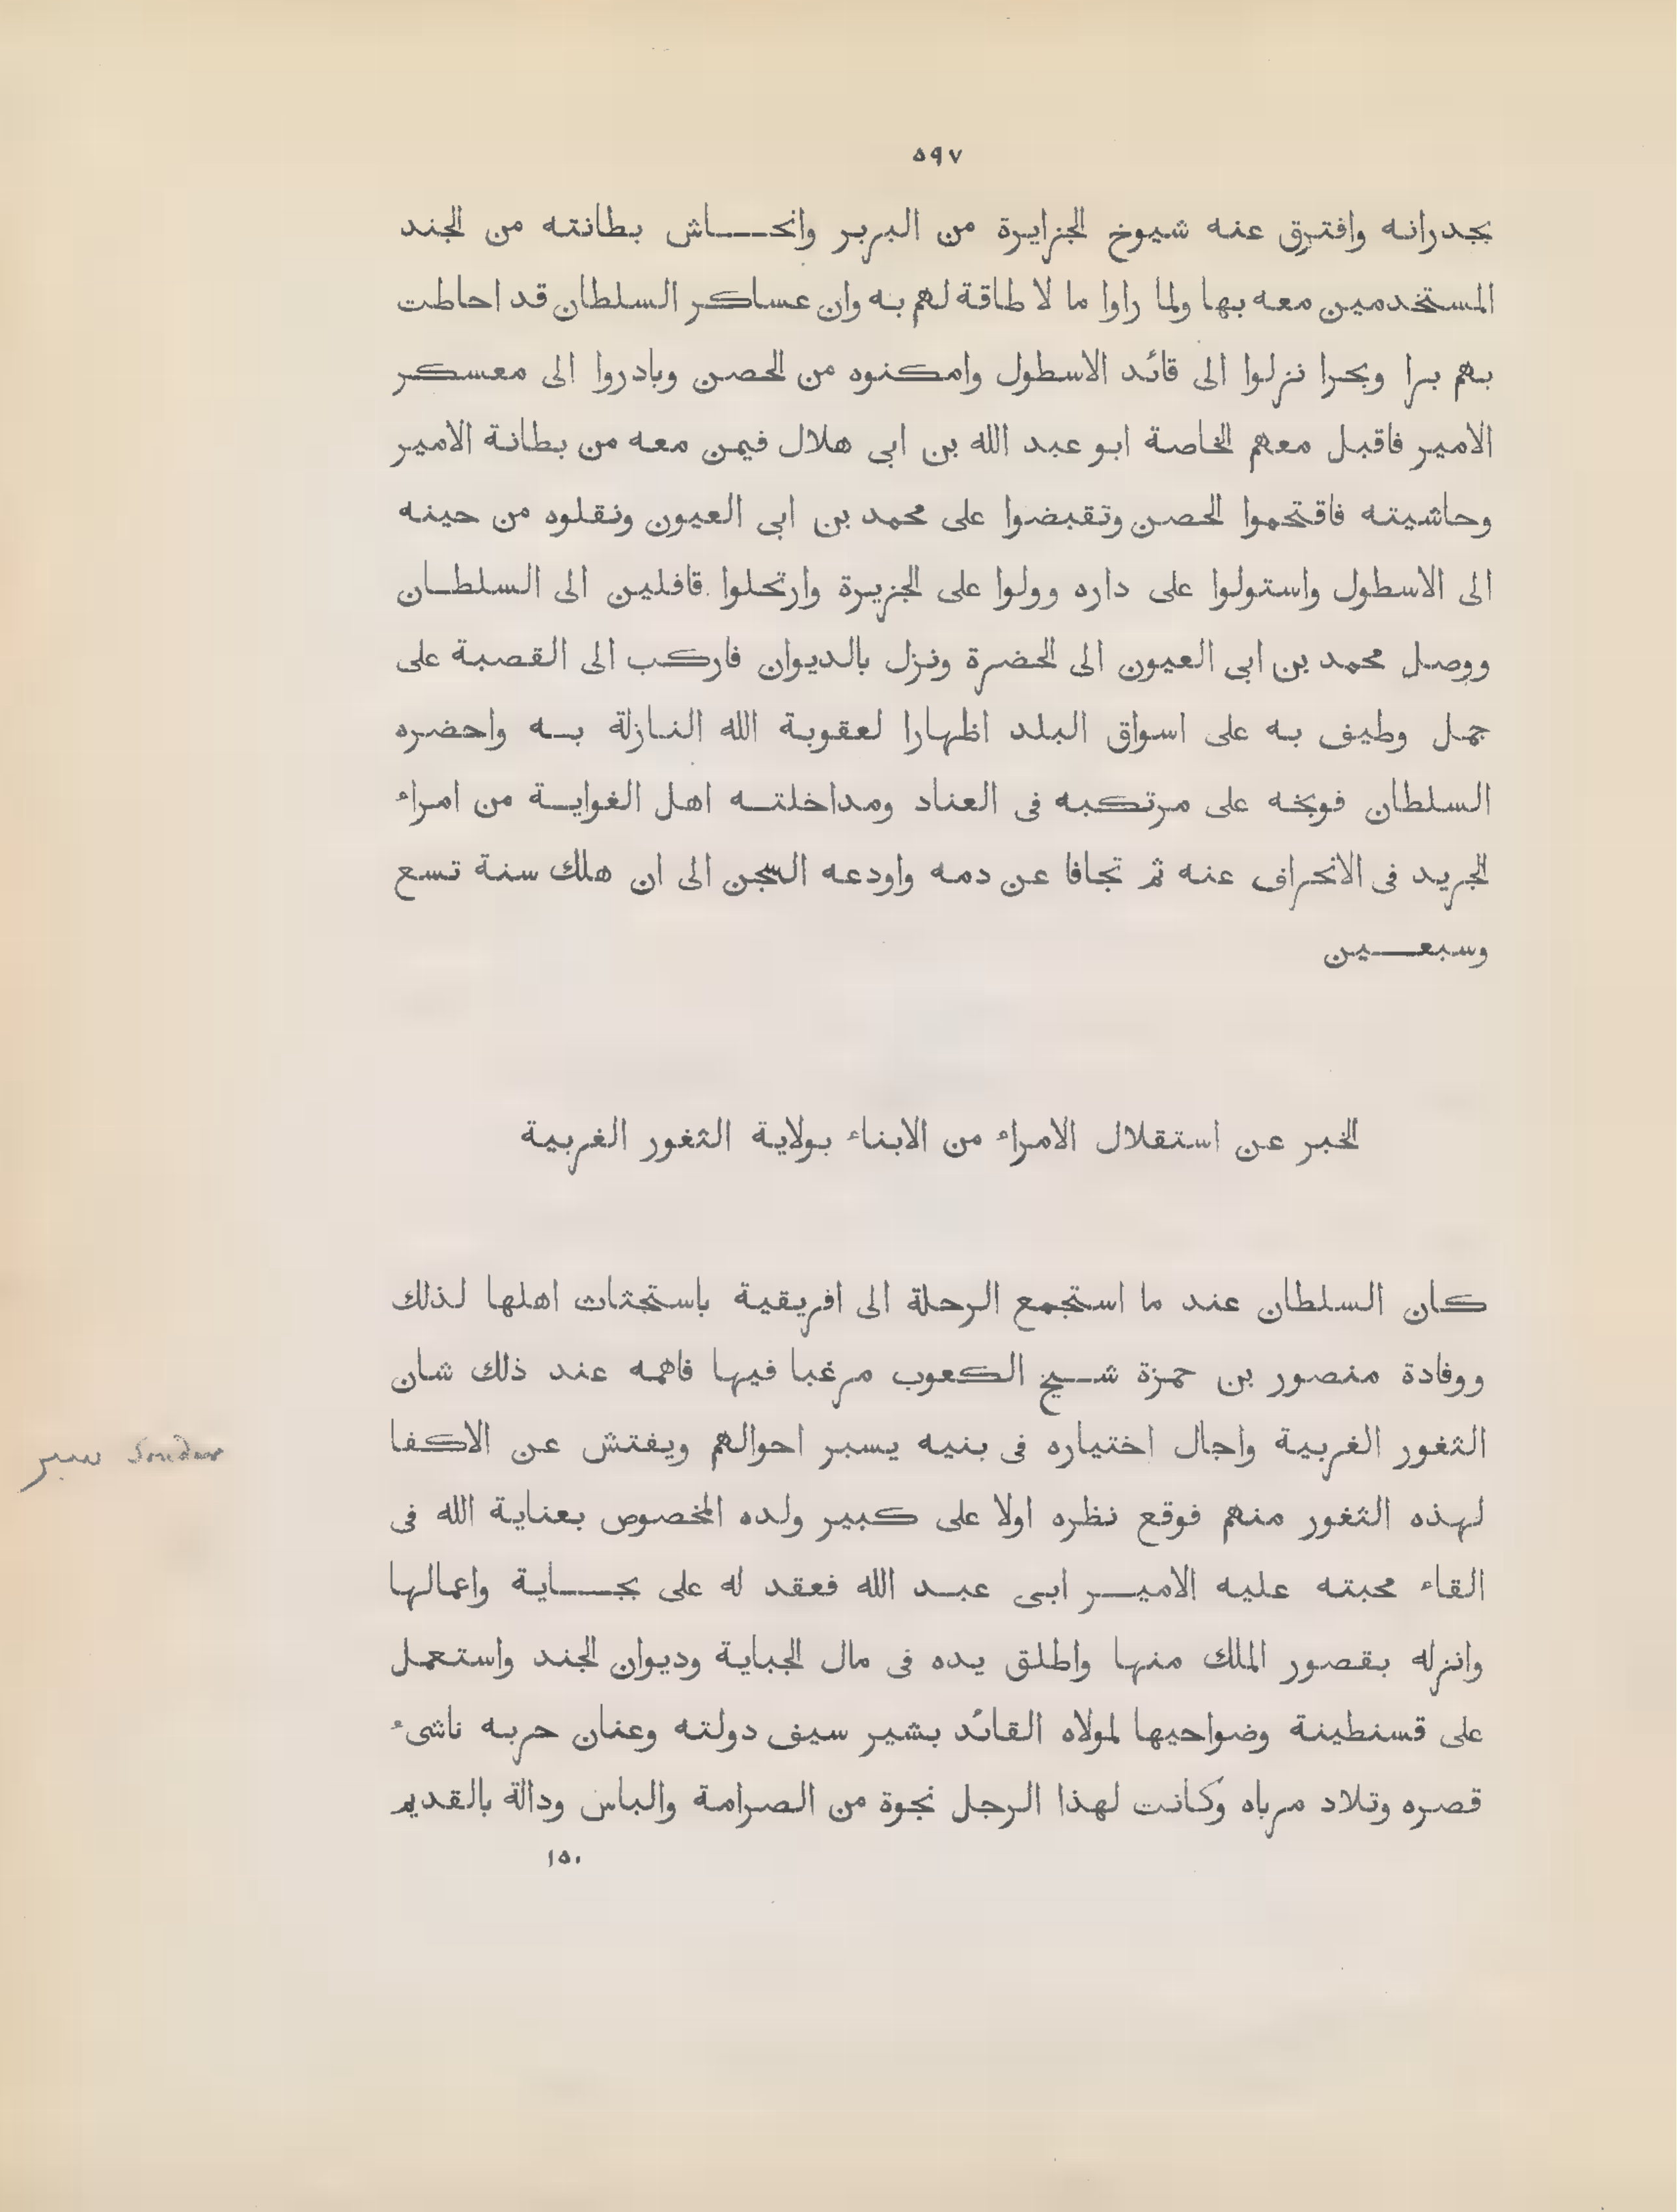 ٥٩٧
بجدرانه وافترق عنه شيوخ الجزايرة من البربر وانحاش بطانته من الجند
المستخدمين معه بها ولما راوا ما لا طاقة لهم به وان عساكر السلطان قد احاطت
بهم برا وبحرا نزلوا الى قائد الاسطول وامكنوه من الحصن وبادروا الى معسكر
الامير فاقبل معهم الخاصة ابو عبد الله بن ابى هلال فيمن معه من بطانة الامير
وحاشيته فاقتحموا الحصن وتقبضوا على محمد بن ابى العيون ونقلوه من حينه
الى الاسطول واستولوا على داره وولوا على الجزيرة وارتحلوا قافلين الى السلطان
ووصل محمد بن ابى العيون الى الحضرة ونزل بالديوان فاركب الى القصبة على
جمل وطيف به على اسواق البلد اظهارا لعقوبة الله النازلة به واحضره
السلطان فوبخه على مرتكبه فى العناد ومداخلته اهل الغواية من امراء
الجريد فى الانحراف عنه ثم تجافا عن دمه واودعه السجن الى ان هلك سنة تسع
وسبعين
الخبر عن استقلال الامراء من الابناء بولاية الثغور الغربية
كان السلطان عند ما استجمع الرحلة الى افريقية باستحثاث اهلها لذلك
ووفادة منصور بن حمزة شيخ الكعوب مرغبا فيها فاهمه عند ذلك شان
الثغور الغربية واجال اختياره فى بنيه يسبر احوالهم ويفتش عن الاكفا
سبر sonder
لهذه الثغور منهم فوقع نظره اولا على كبير ولده المخصوص بعناية الله فى
القاء محبته عليه الامير ابى عبد الله فعقد له على بجاية واعمالها
وانزله بقصور الملك منها واطلق يده فى مال الجباية وديوان الجند واستعمل
على قسنطينة وضواحيها لمولاه القائد بشير سيف دولته وعنان حربه ناشىء
قصره وتلاد مرباه وكانت لهذا الرجل نجوة من الصرامة والباس ودالة بالقديم
١٥٠